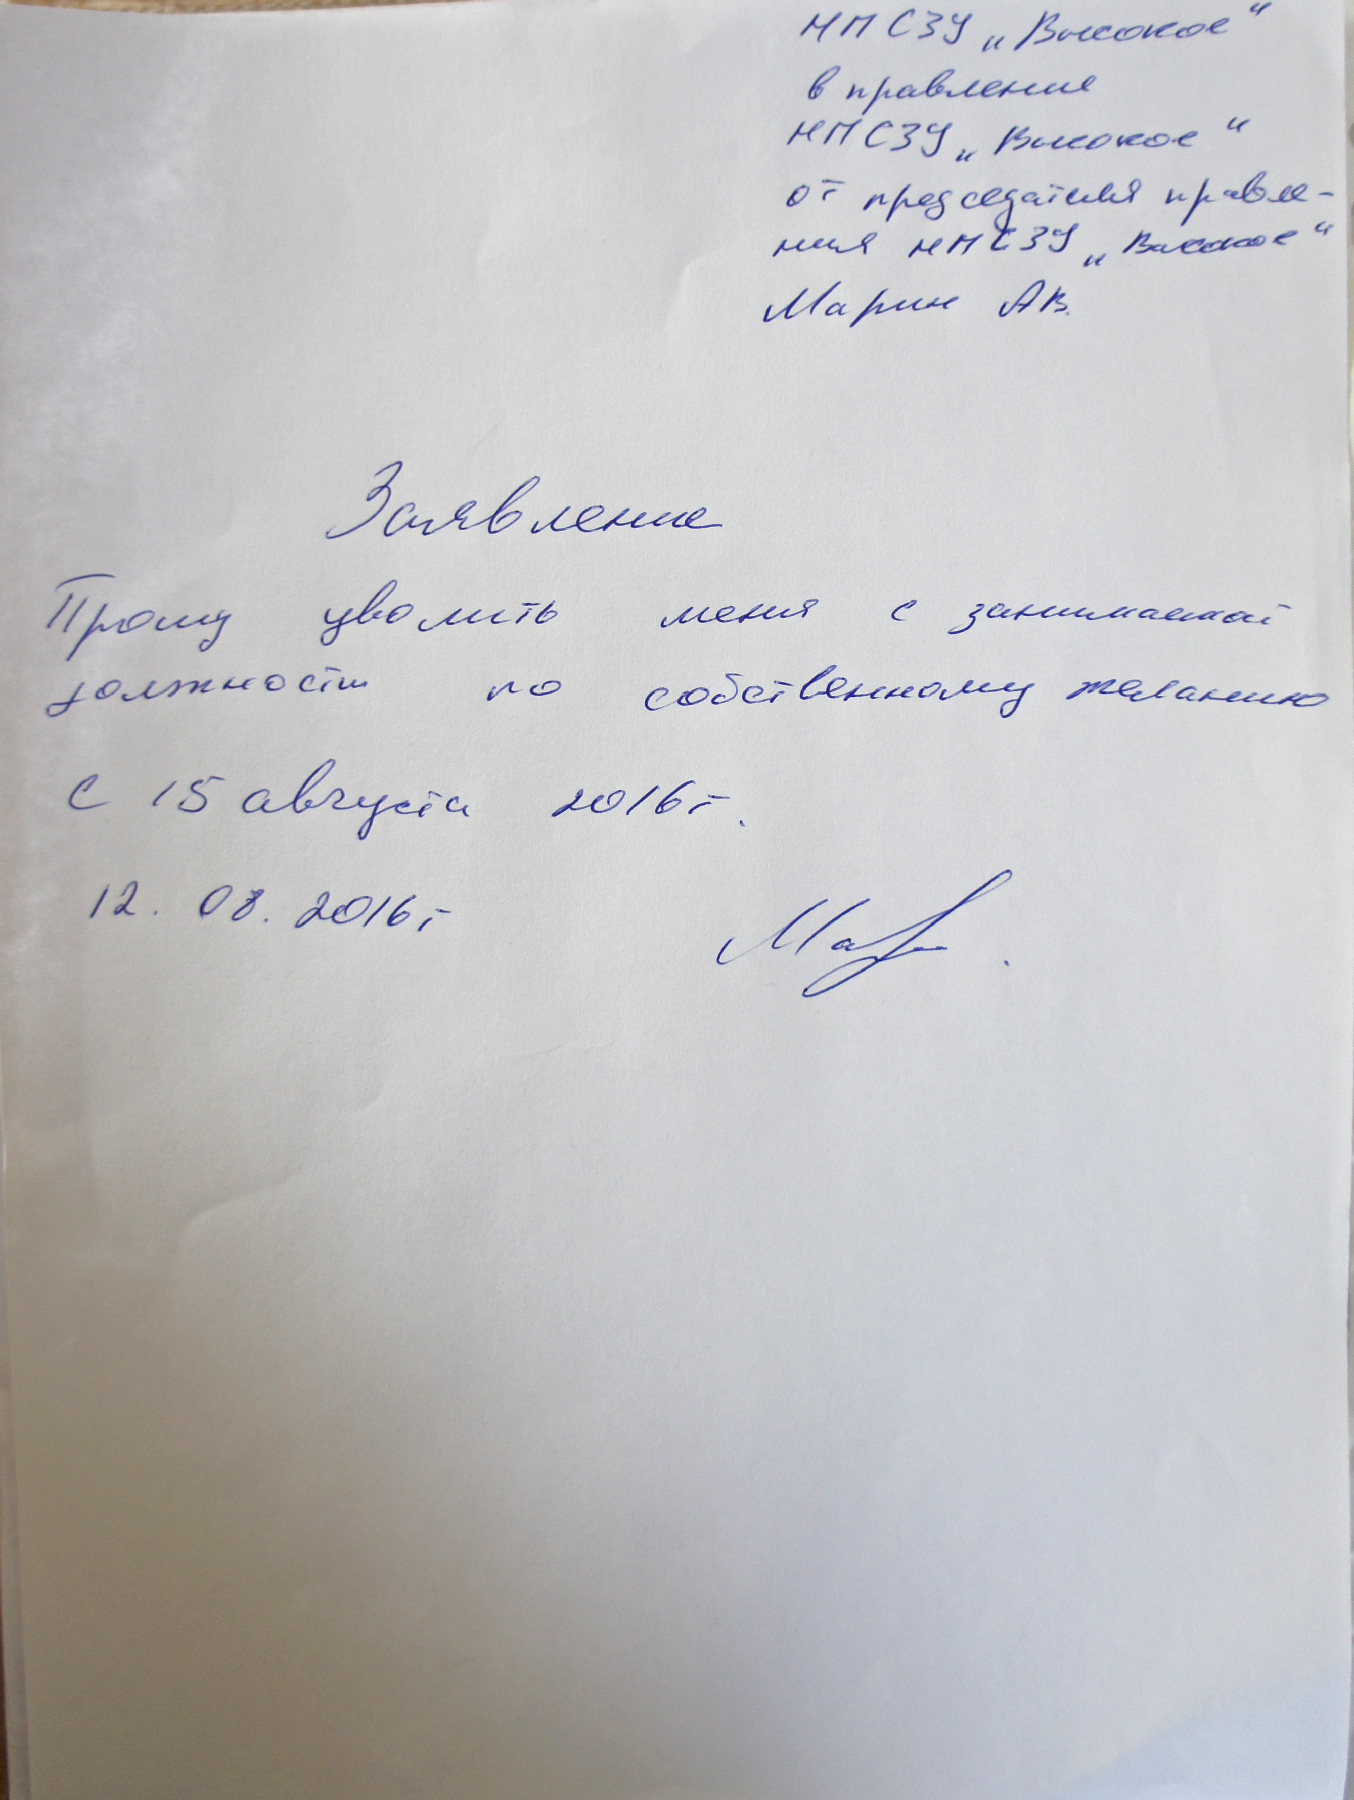 НПСЗУ „Высокое“
в правление
НПСЗУ „Высокое“
от председателя правле-
ния НПСЗУ „Высокое“
Марин АВ.
Заявление
Прошу уволить меня с занимаемой
должности по собственному желанию
с 15 августа 2016г.
12.08.2016г